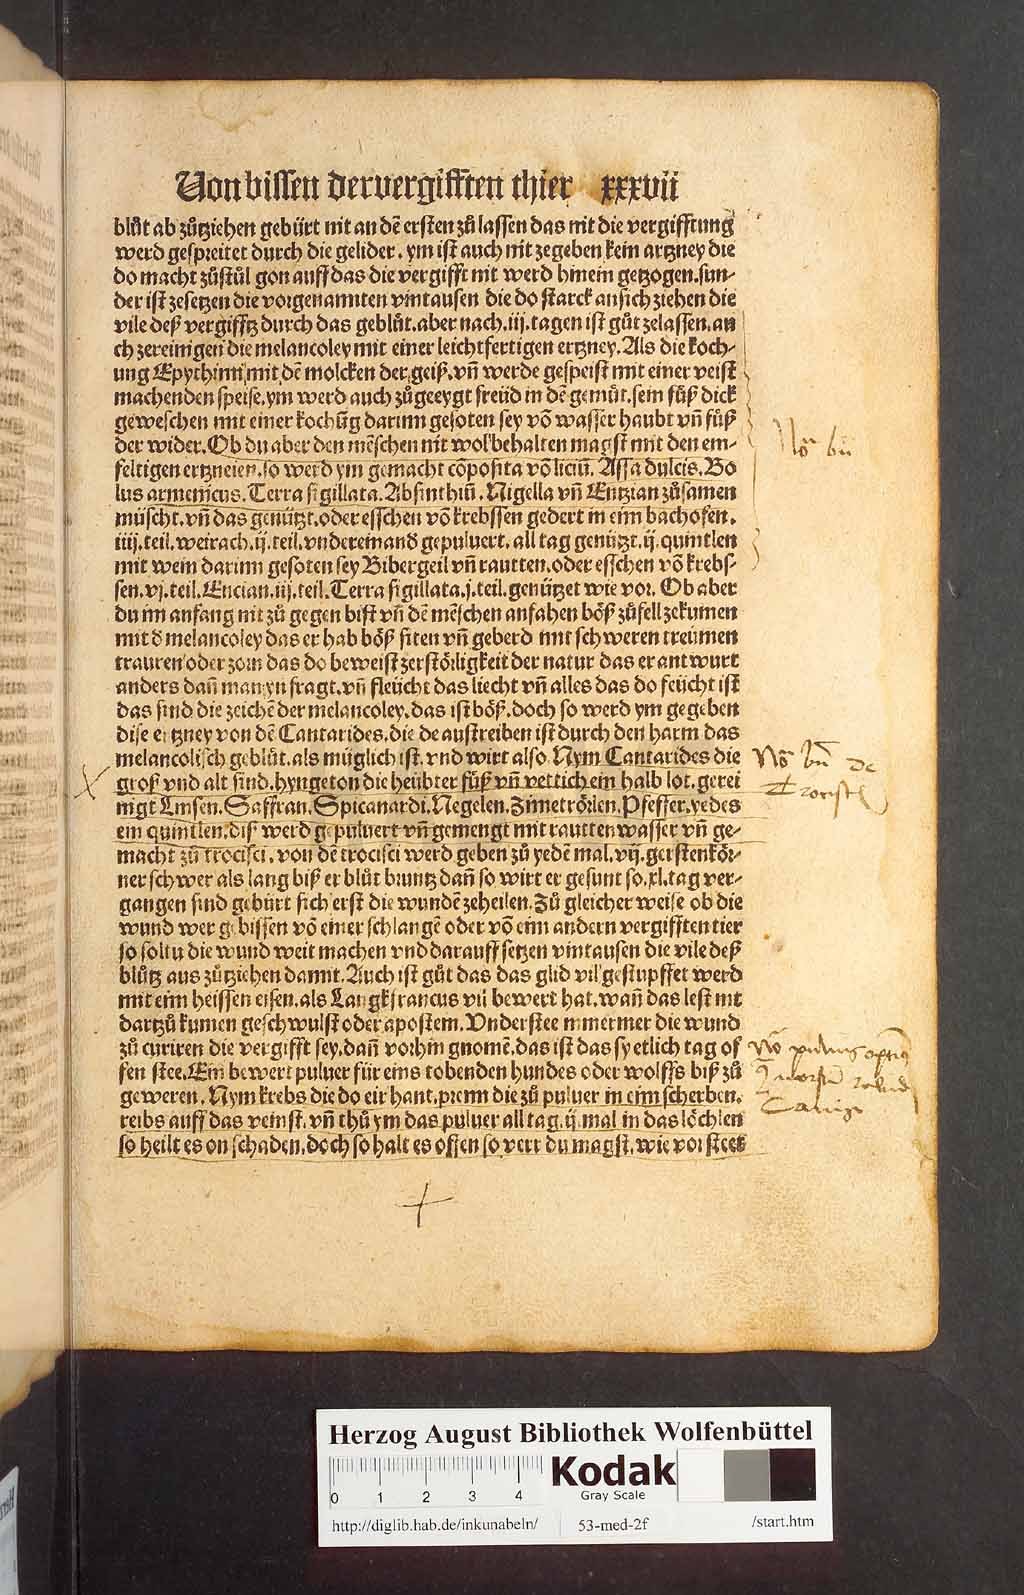 Von bissen der vergifften thier xxxvii
blůt ab zůtziehen gebürt nit an dē ersten zů lassen das nit die vergifftung
werd gespreitet durch die gelider. ym ist auch nit zegeben kein artzney die
do macht zůstůl gon auff das die vergifft nit werd hinein getzogen. sun-
der ist zesetzen die vorgenamten vintausen die do starck an sich ziehen die
vile deß vergifftz durch das geblůt. aber nach .iij. tagen ist gůt zelassen. au
ch zereinigen die melancoley mit einer leichtfertigen ertzney. Als die koch-
ung Epythimi mit dē molcken der geiß. vñ werde gespeist mit einer veist
machenden speise. ym werd auch zůgeeygt freüd in dē gemůt. sein fůß dick
geweschen mit einer kochūg darinn gesoten sey võ wasser haubt vñ fůß
der wider. Ob du aber den mēschen nit wol behalten magst mit den ein-
feltigen ertzneien. so werd ym gemacht cõposita võ liciū. Assa dulcis. Bo
lus armenicus. Terra sigillata. Absinthiū. Nigella vñ Entzian zůsamen
müscht. vñ das genützt. oder esschen võ krebssen gedert in eim bachofen.
iiij. teil. weirach. ij. teil. vndereinand gepuluert. all tag genützt. ij. quintlen
mit wein darinn gesoten sey Bibergeil vñ rautten. oder esschen võ krebs-
sen. vj. teil. Encian. iij. teil. Terra sigillata. j. teil. genützet wie vor. Ob aber
du im anfang nit zů gegen bist vñ dē mēschen anfahen böß zůfell zekumen
mit d melancoley das er hab böß siten vñ geberd mit schweren treümen
trauren oder zorn das do beweist zerstörligkeit der natur das er antwurt
anders dañ man yn fragt. vñ fleücht das liecht vñ alles das do feücht ist
das sind die zeichē der melancoley. das ist böß. doch so werd ym gegeben
dise ertzney von dē Cantarides. die de austreiben ist durch den harm das
melancolisch geblůt. als müglich ist. vnd wirt also. Nym Cantarides die
groß vnd alt sind. hyngeton die heübter fůß vñ vettich ein halb lot. gerei
nigt Linsen. Saffran. Spicanardi. Negelen. Zimetrörlen. Pfeffer. yedes
ein quintlen. diß werd gepuluert vñ gemengt mit rauttenwasser vñ ge-
macht zů trocisci. von dē trocisci werd geben zů yedē mal. vij. gerstenkör-
ner schwer als lang biß er blůt bruntz dañ so wirt er gesunt so .xl. tag ver-
gangen sind gebürt sich erst die wundē zeheilen. Zů gleicher weise ob die
wund wer gebissen võ einer schlangē oder võ eim andern vergifften tier
so soltu die wund weit machen vnd darauff setzen vintausen die vile deß
blůtz aus zůtziehen damit. Auch ist gůt das das glid vil gestupffet werd
mit eim heissen eisen. als Langkfrancus vil bewert hat. wañ das lest nit
dartzů kumen geschwulst oder apostem. Vnderstee nimermer die wund
zů curiren die vergifft sey. dañ vorhin gnomē. das ist das sy etlich tag of
fen stee. Ein bewert puluer für eins tobenden hundes oder wolffs biß zů
geweren. Nym krebs die do eir hant. prenn die zů puluer in eim scherben.
reibs auff das reinst. vñ thů ym das puluer all tag. ij. mal in das löchlen
so heilt es on schaden. doch so halt es offen so verr du magst. wie vor steet
Herzog August Bibliothek Wolfenbüttel
0 1 2 3 4
Kodak
Gray Scale
http://diglib.hab.de/inkunabeln/ 53-med-2f /start.htm